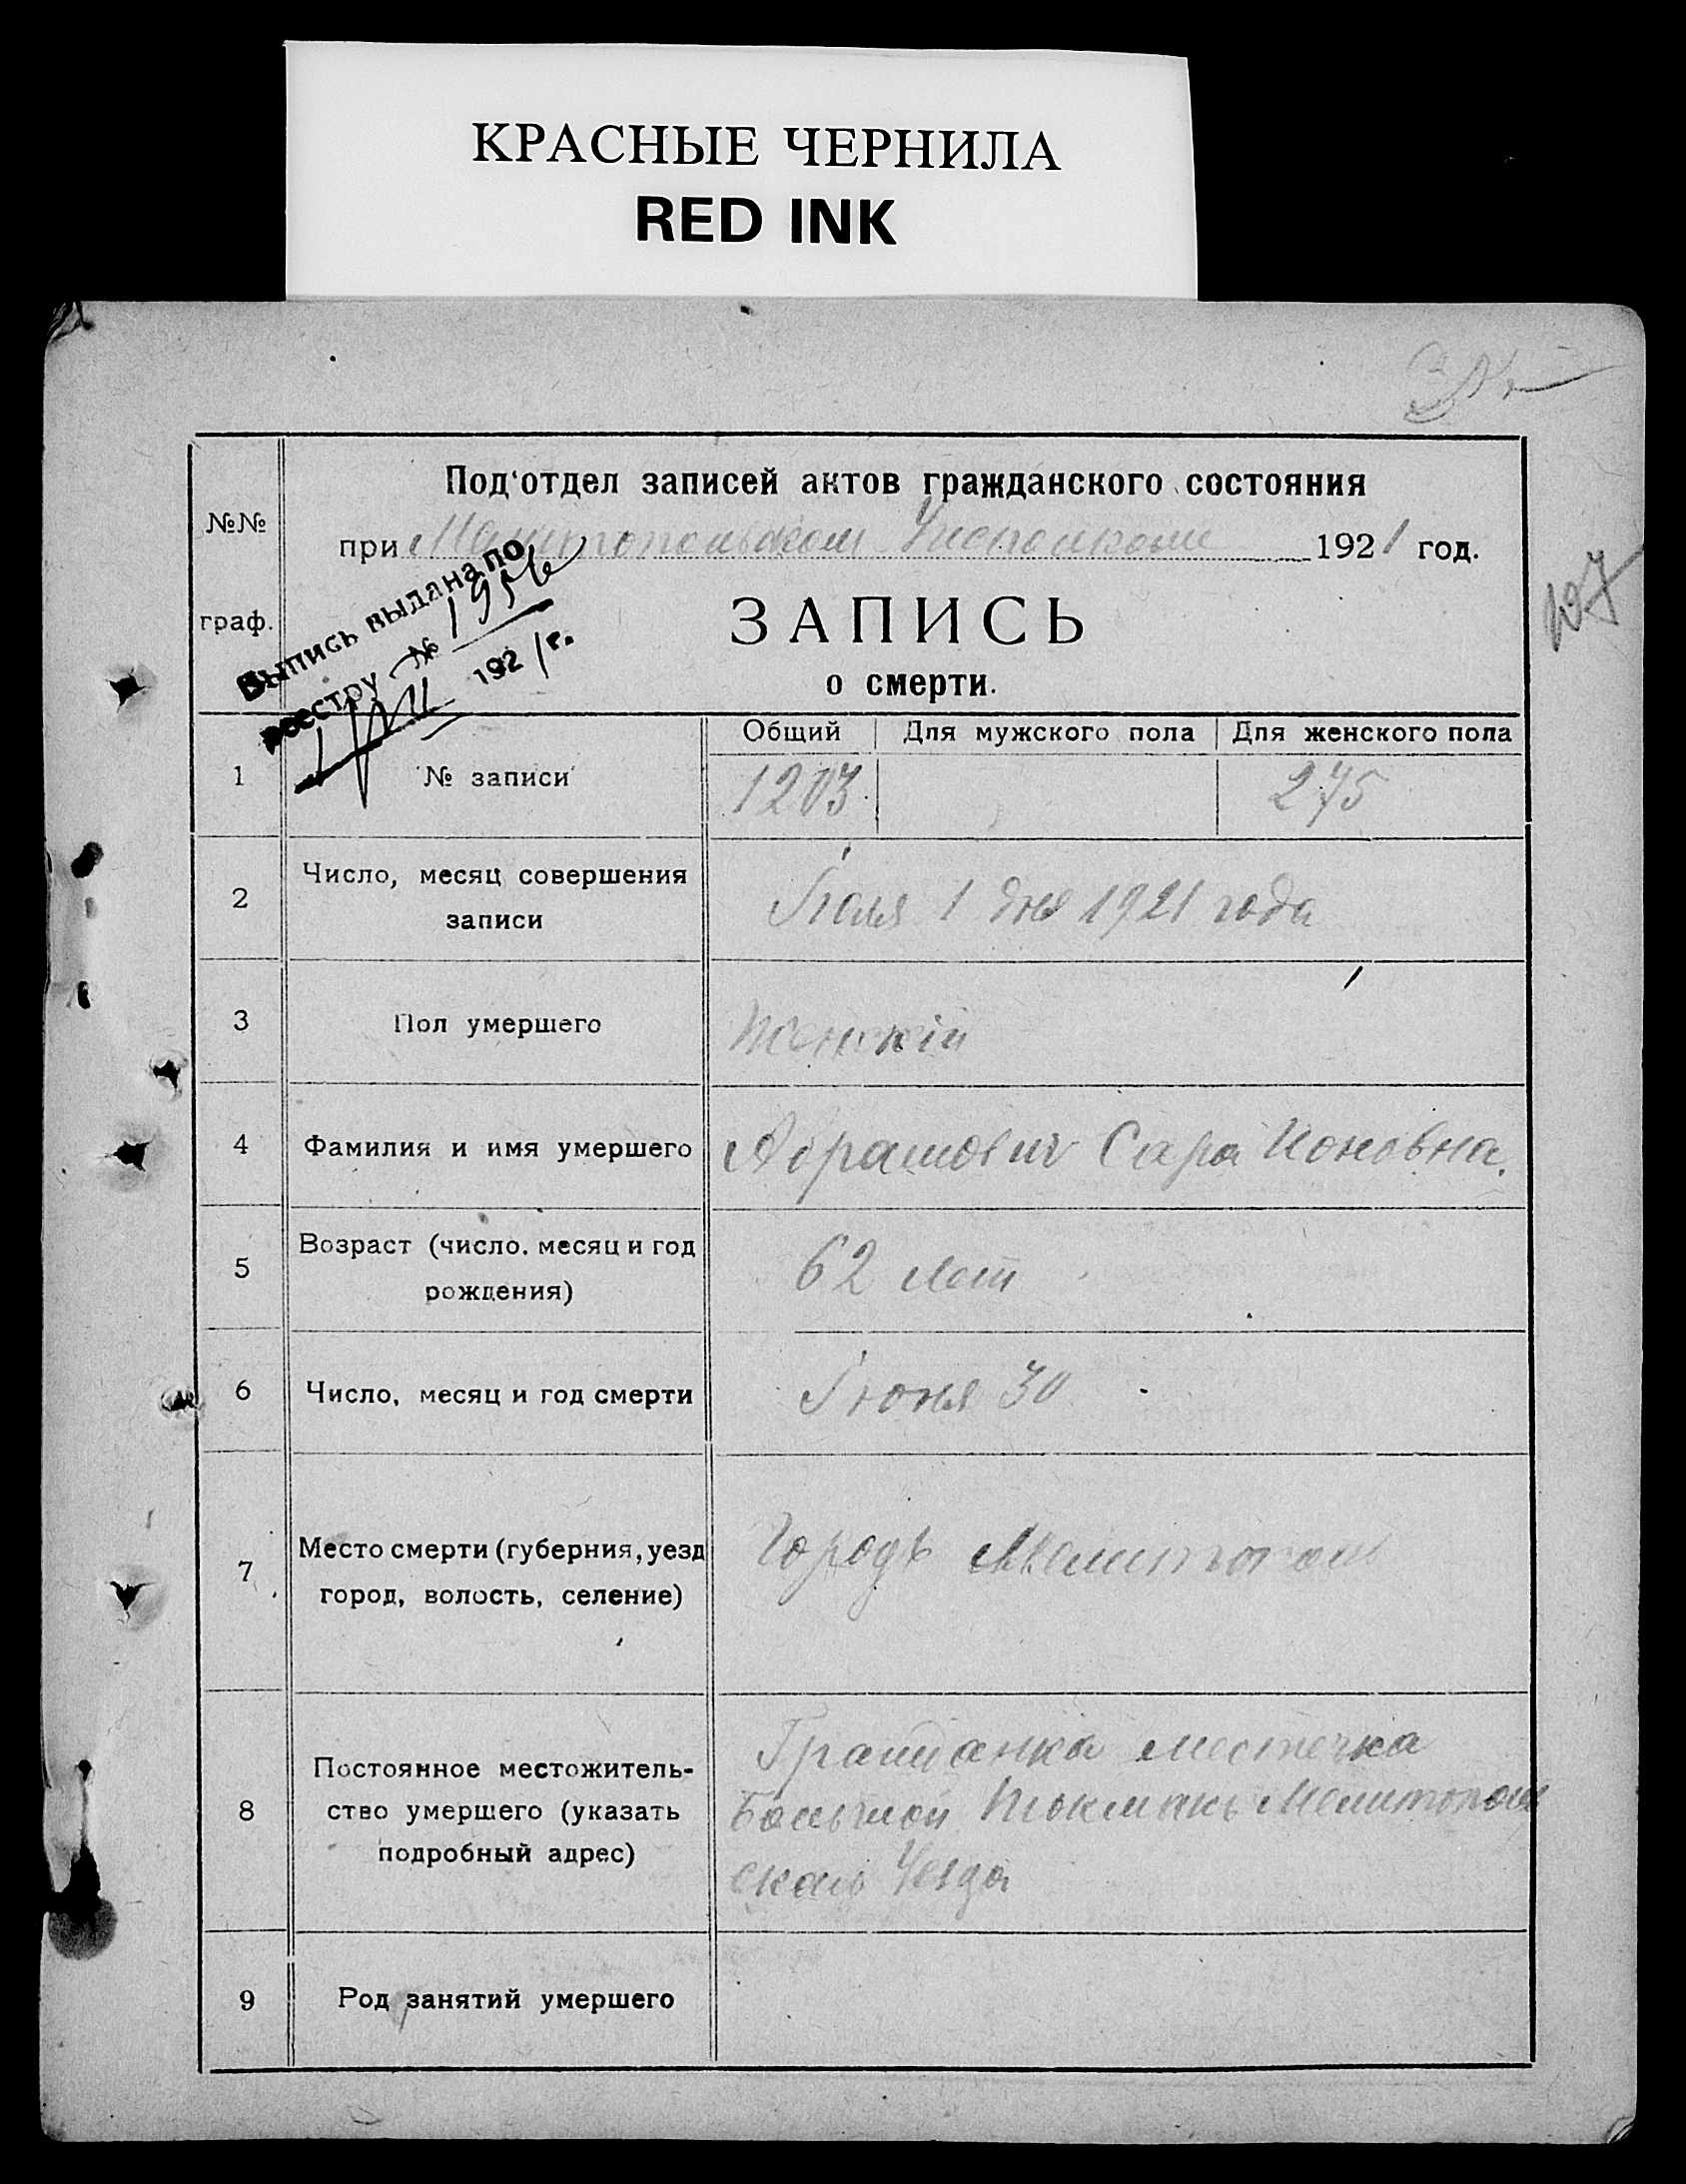 КРАСНЫЕ ЧЕРНИЛА
RED INK
№№
граф.
Под'отдел записей актов гражданского состояния
при Мелитопольском Исполкоме 1921 год.
Выпись выдана по
реестру № 1956
192 1 г.
ЗАПИСЬ
о смерти.
Общий Для мужского пола Для женского пола
1 № записи 1203 275
2 Число, месяц совершения
записи
Іюля 1 дня 1921 года
3 Пол умершего Женскій
4 Фамилия и имя умершего Абрамович Сара Ионовна.
5 Возраст (число. месяц и год
рождения)
62 лет
6 Число, месяц и год смерти Іюня 30
7 Место смерти (губерния, уезд
город, волость, селение)
Городъ Мелитополь
8 Постоянное местожитель-
ство умершего (указать
подробный адрес)
Гражданка местечка
Большой Токмакъ Мелитополь
скаго Уезда
9 Род занятий умершего